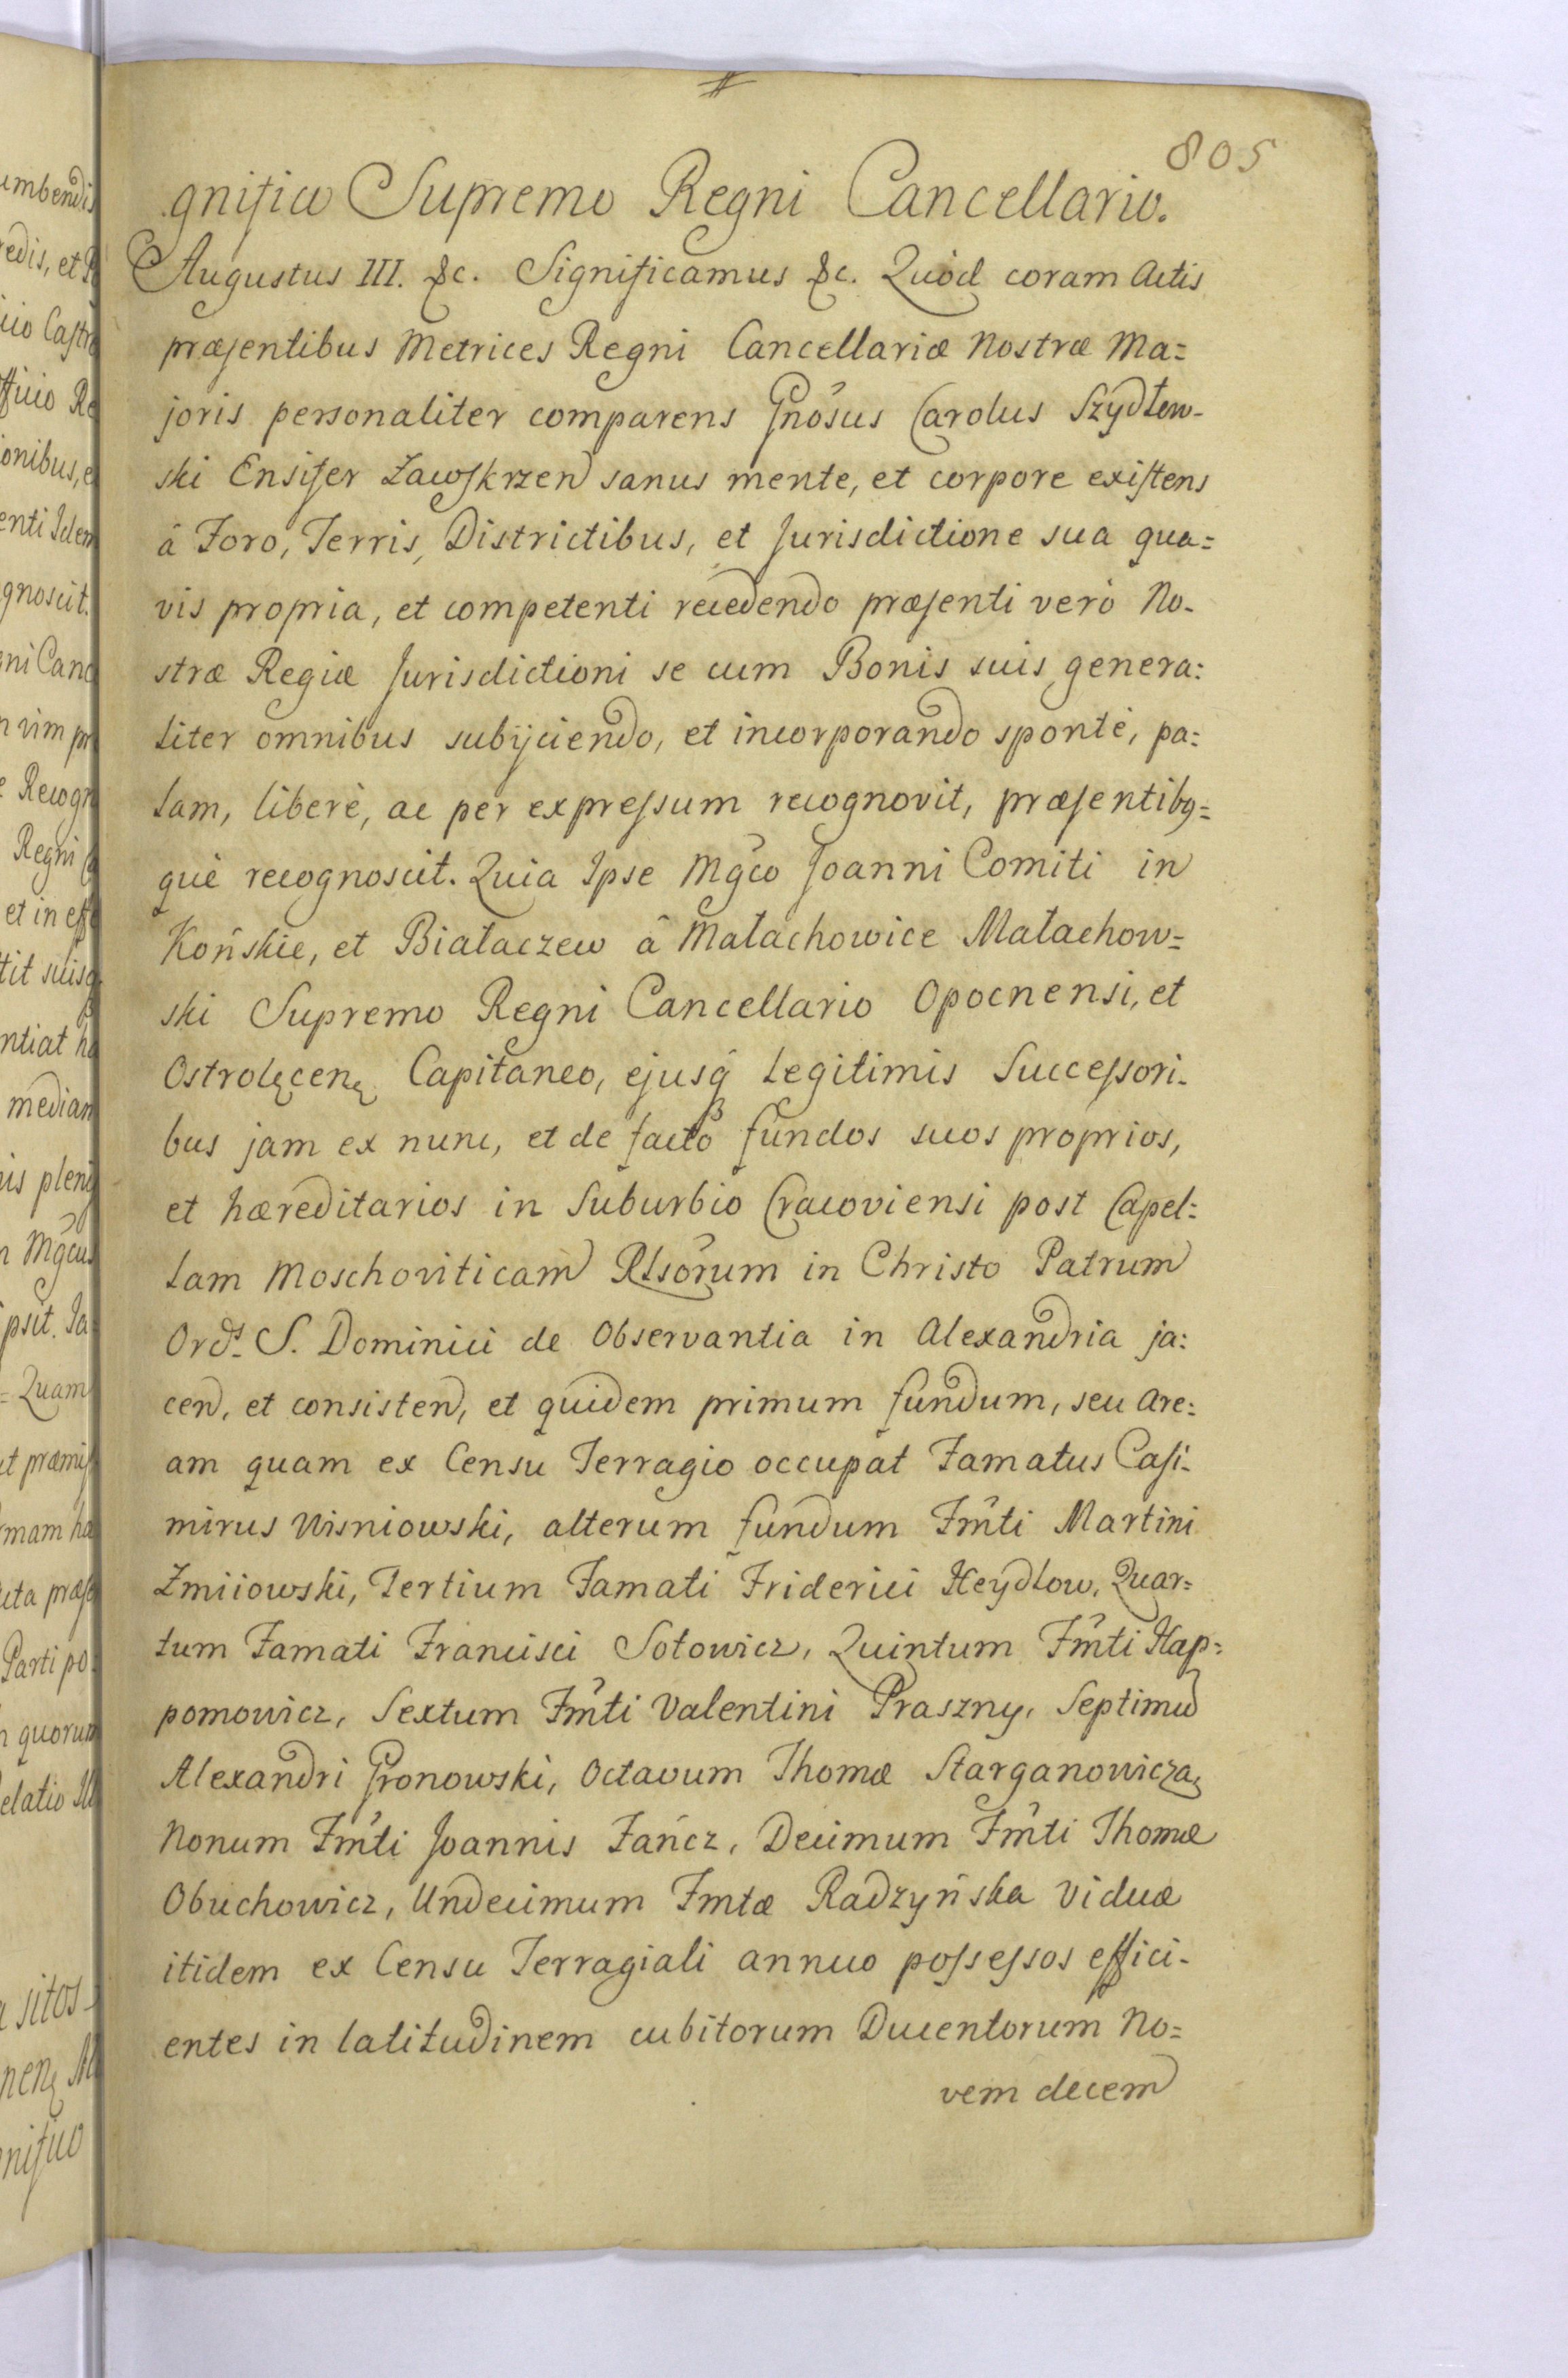 805
gnifico Supremo Regni Cancellario.
Augustus III. &c. Significamus &c. Quòd coram Actis
præsentibus Metrices Regni Cancellariæ Nostræ Ma=
joris personaliter comparens Gnosus Carolus Szydłow-
ski Ensifer Zawskrzen sanus mente, et corpore existens
â Foro, Terris, Districtibus, et Jurisdictione sua qua=
vis propria, et competenti recedendo præsenti verò No-
stræ Regiæ Jurisdictioni se cum Bonis suis genera:
liter omnibus subijciendo, et incorporando spontè, pa:
lam, liberè, ac per expressum recognovit, præsentibq=
què recognoscit. Quia Ipse Mgco Joanni Comiti in
Końskie, et Białaczew â Małachowice Małachow=
ski Supremo Regni Cancellario Opocnensi, et
Ostrolęcenę Capitaneo, ejusq Legitimis Successori-
bus jam ex nunc, et de facto fundos suos proprios,
et hæreditarios in Suburbio Cracoviensi post Capel:
lam Moschoviticam Rlsorum in Christo Patrum
Ords S. Dominici de Observantia in Alexandria ja:
cen, et consisten, et quidem primum fundum, seu Are:
am quam ex Censu Terragio occupat Famatus Casi-
mirus Wisniowski, alterum fundum Fmti Martini
Zmiiowski, Tertium Famati Friderici Heydlow, Quar=
tum Famati Francisci Sotowicz, Quintum Fmti Hap=
pomowicz, Sextum Fmti Valentini Praszny, Septimum
Alexandri Gronowski, Octavum Thomæ Starganowicza,
Nonum Fmti Joannis Fańcz, Decimum Fmti Thomæ
Obuchowicz, Undecimum Fmtæ Radzyńska Viduæ
itidem ex Censu Terragiali annuo possessos effici-
entes in latitudinem cubitorum Ducentorum No=
vem decem